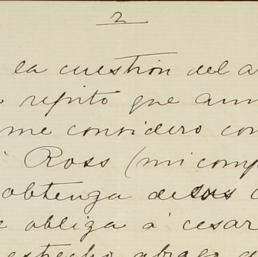 2
la cuestion del a
repito que aun
me considero con
Ross (mi comp
obtenga de sus c
e obliga á cesar
estrecho abrazo d